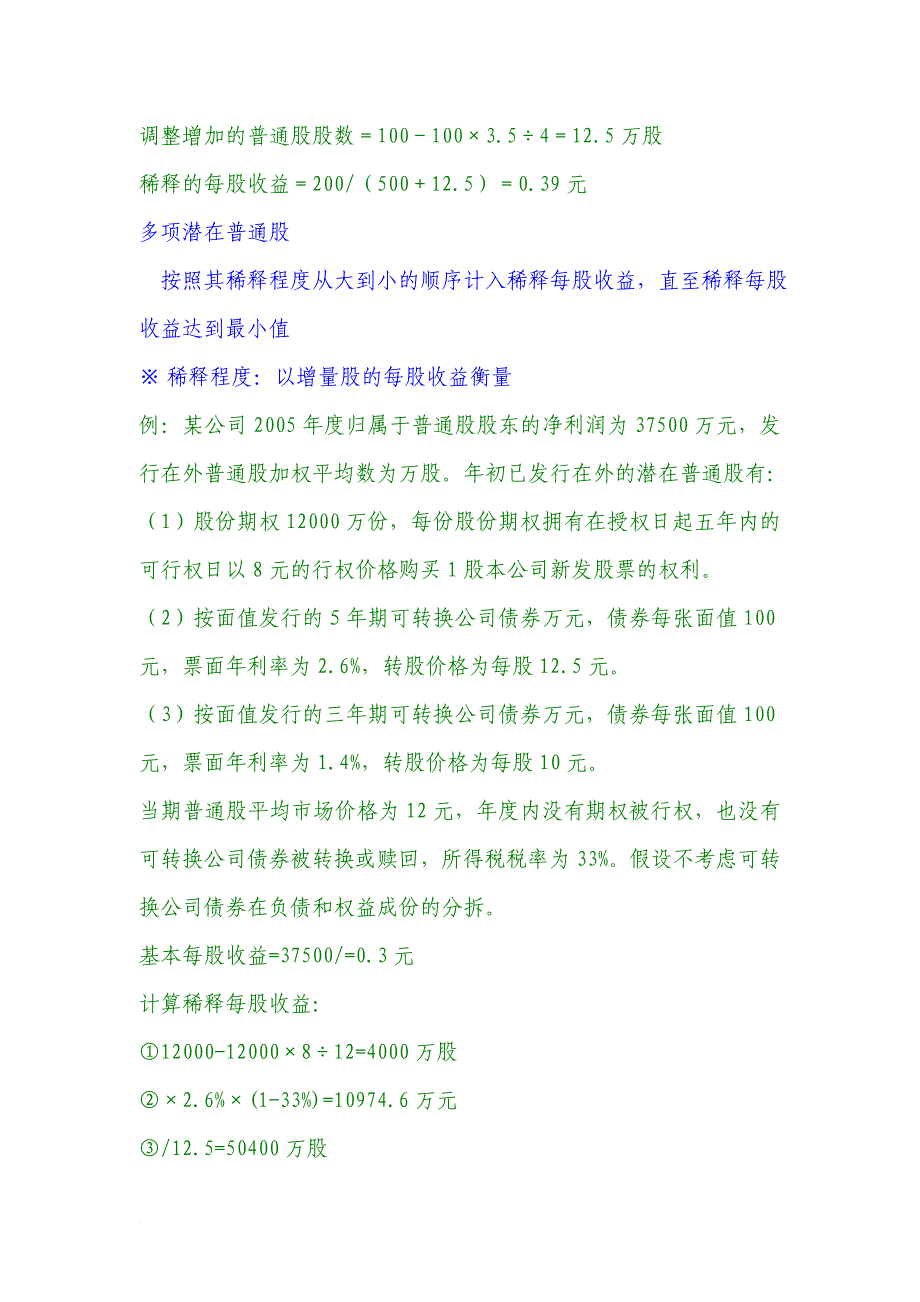 调整增加的普通股股数＝100－100×3.5÷4＝12.5 万股
稀释的每股收益＝200/（500＋12.5）＝0.39 元
多项潜在普通股
按照其稀释程度从大到小的顺序计入稀释每股收益，直至稀释每股
收益达到最小值
※ 稀释程度：以增量股的每股收益衡量
例：某公司 2005 年度归属于普通股股东的净利润为 37500 万元，发
行在外普通股加权平均数为万股。年初已发行在外的潜在普通股有：
（1）股份期权 12000 万份，每份股份期权拥有在授权日起五年内的
可行权日以 8 元的行权价格购买 1 股本公司新发股票的权利。
（2）按面值发行的 5 年期可转换公司债券万元，债券每张面值 100
元，票面年利率为 2.6%，转股价格为每股 12.5 元。
（3）按面值发行的三年期可转换公司债券万元，债券每张面值 100
元，票面年利率为 1.4%，转股价格为每股 10 元。
当期普通股平均市场价格为 12 元，年度内没有期权被行权，也没有
可转换公司债券被转换或赎回，所得税税率为 33%。假设不考虑可转
换公司债券在负债和权益成份的分拆。
基本每股收益=37500/=0.3 元
计算稀释每股收益：
①12000-12000×8÷12=4000 万股
②×2.6%×(1-33%)=10974.6 万元
③/12.5=50400 万股